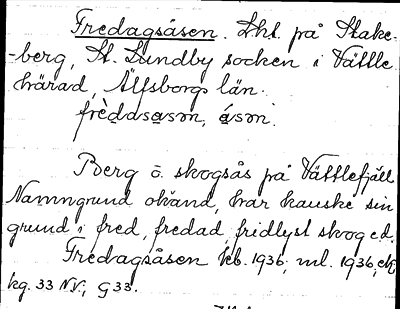 Fredagsåsen. Lht. på Stake-
-berg, St. Lundby socken i Vättle
härad, Älfsborgs län.
frèdasasәn, ásәn.
Berg o. skogsås på Vättlefjäll
Namngrund okänd, har kanske sin
grund i fred, fredad, fridlyst skog e.d.
Fredagsåsen jkb. 1936, ml. 1936, ek
kg. 33 NV, G 33.